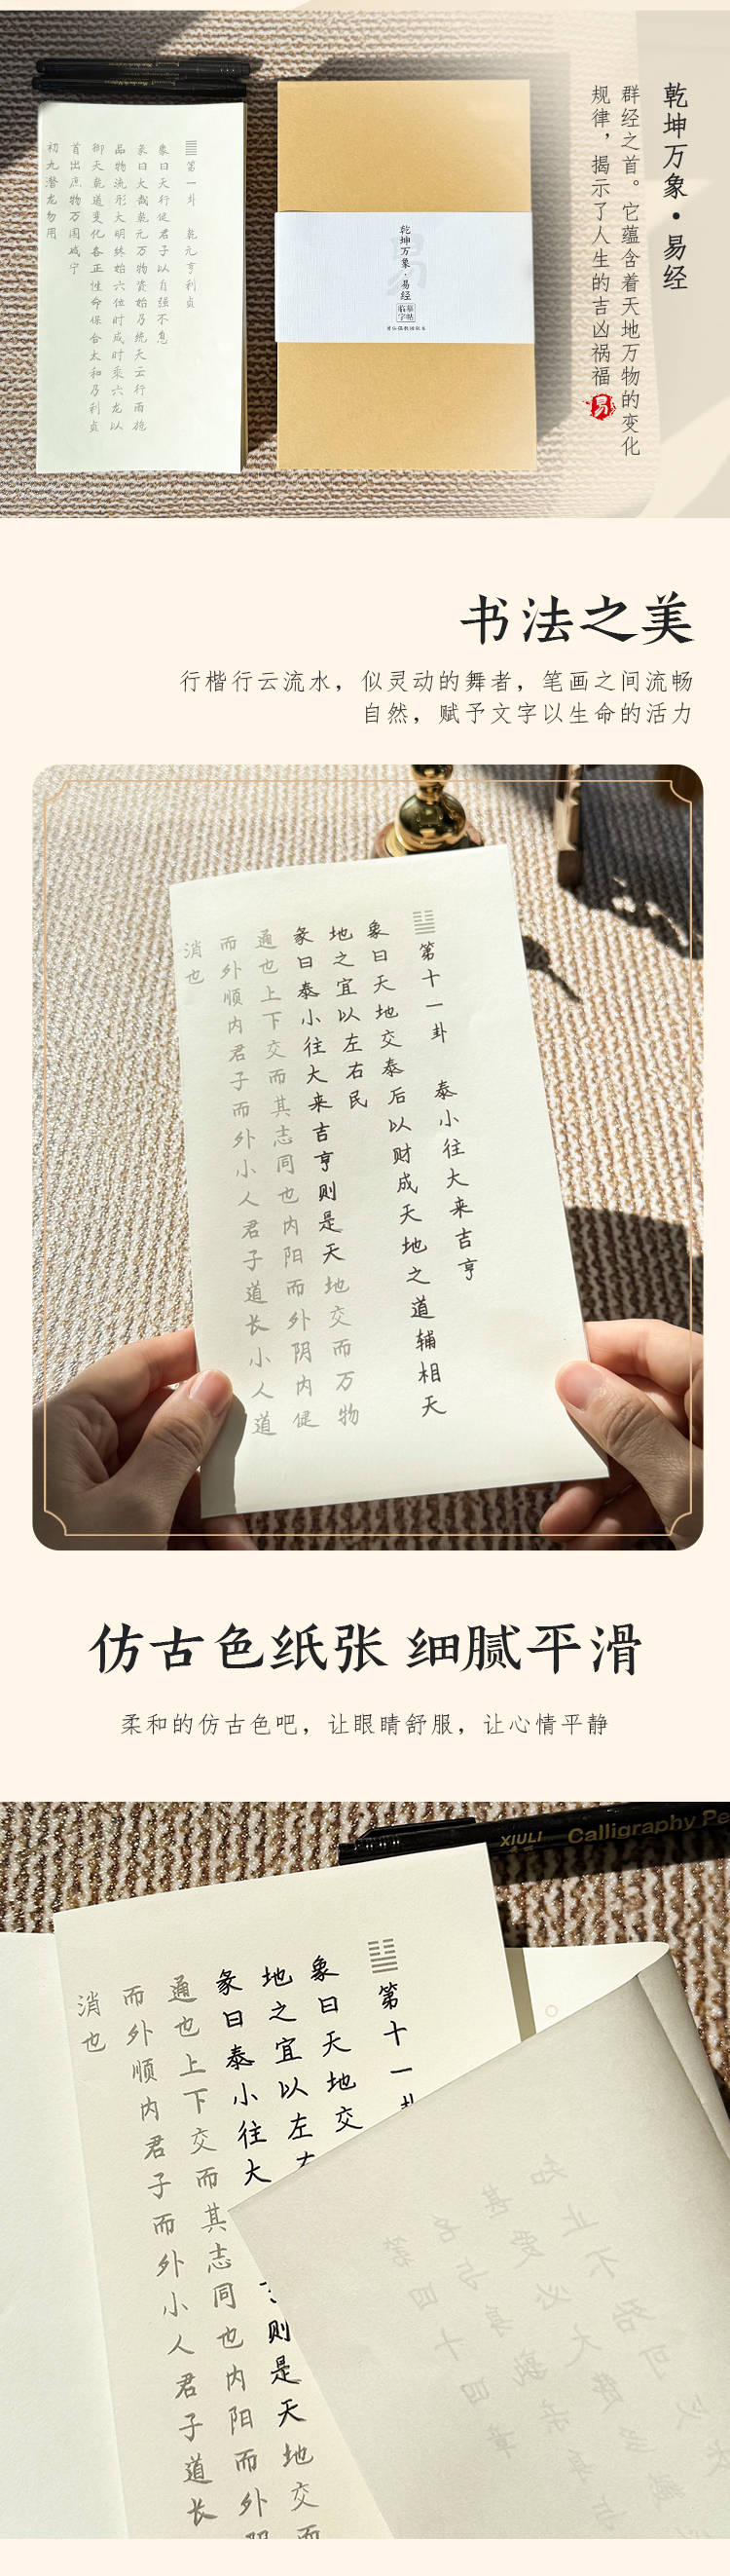 乾坤万象·易经
群经之首。它蕴含着天地万物的变化
规律，揭示了人生的吉凶祸福
易
第一卦 乾元亨利贞
象曰天行健君子以自强不息
彖曰大哉乾元万物资始乃统天云行雨施
品物流形大明终始六位时成时乘六龙以
御天乾道变化各正性命保合太和乃利贞
首出庶物万国咸宁
初九潜龙勿用
乾坤万象·易经
临摹字帖
书法之美
行楷行云流水，似灵动的舞者，笔画之间流畅
自然，赋予文字以生命的活力
第十一卦 泰小往大来吉亨
象曰天地交泰后以财成天地之道辅相天
地之宜以左右民
彖曰泰小往大来吉亨则是天地交而万物
通也上下交而其志同也内阳而外阴内健
而外顺内君子而外小人君子道长小人道
消也
仿古色纸张 细腻平滑
柔和的仿古色吧，让眼睛舒服，让心情平静
XIULI Calligraphy Pe
第十一卦
象曰天地交
地之宜以左右
彖曰泰小往大
则是天地交而
通也上下交而其志同也内阳而外阴
而外顺内君子而外小人君子道长
消也